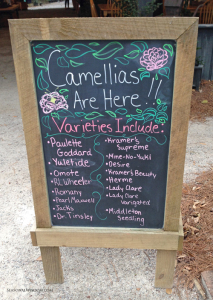 Camellias
Are Here!!
Varieties Include:
• Paulette
Goddard
• Yuletide
• Omote
• R.L. Wheeler
• Romany
• Pearl Maxwell
• Jacks
• Dr. Tinsley
• Kramer's
Supreme
• Mine-No-Yuki
• Desire
• Kramer's Beauty
• Herme
• Lady Clare
• Lady Clare
Varigated
• Middleton
Seedling